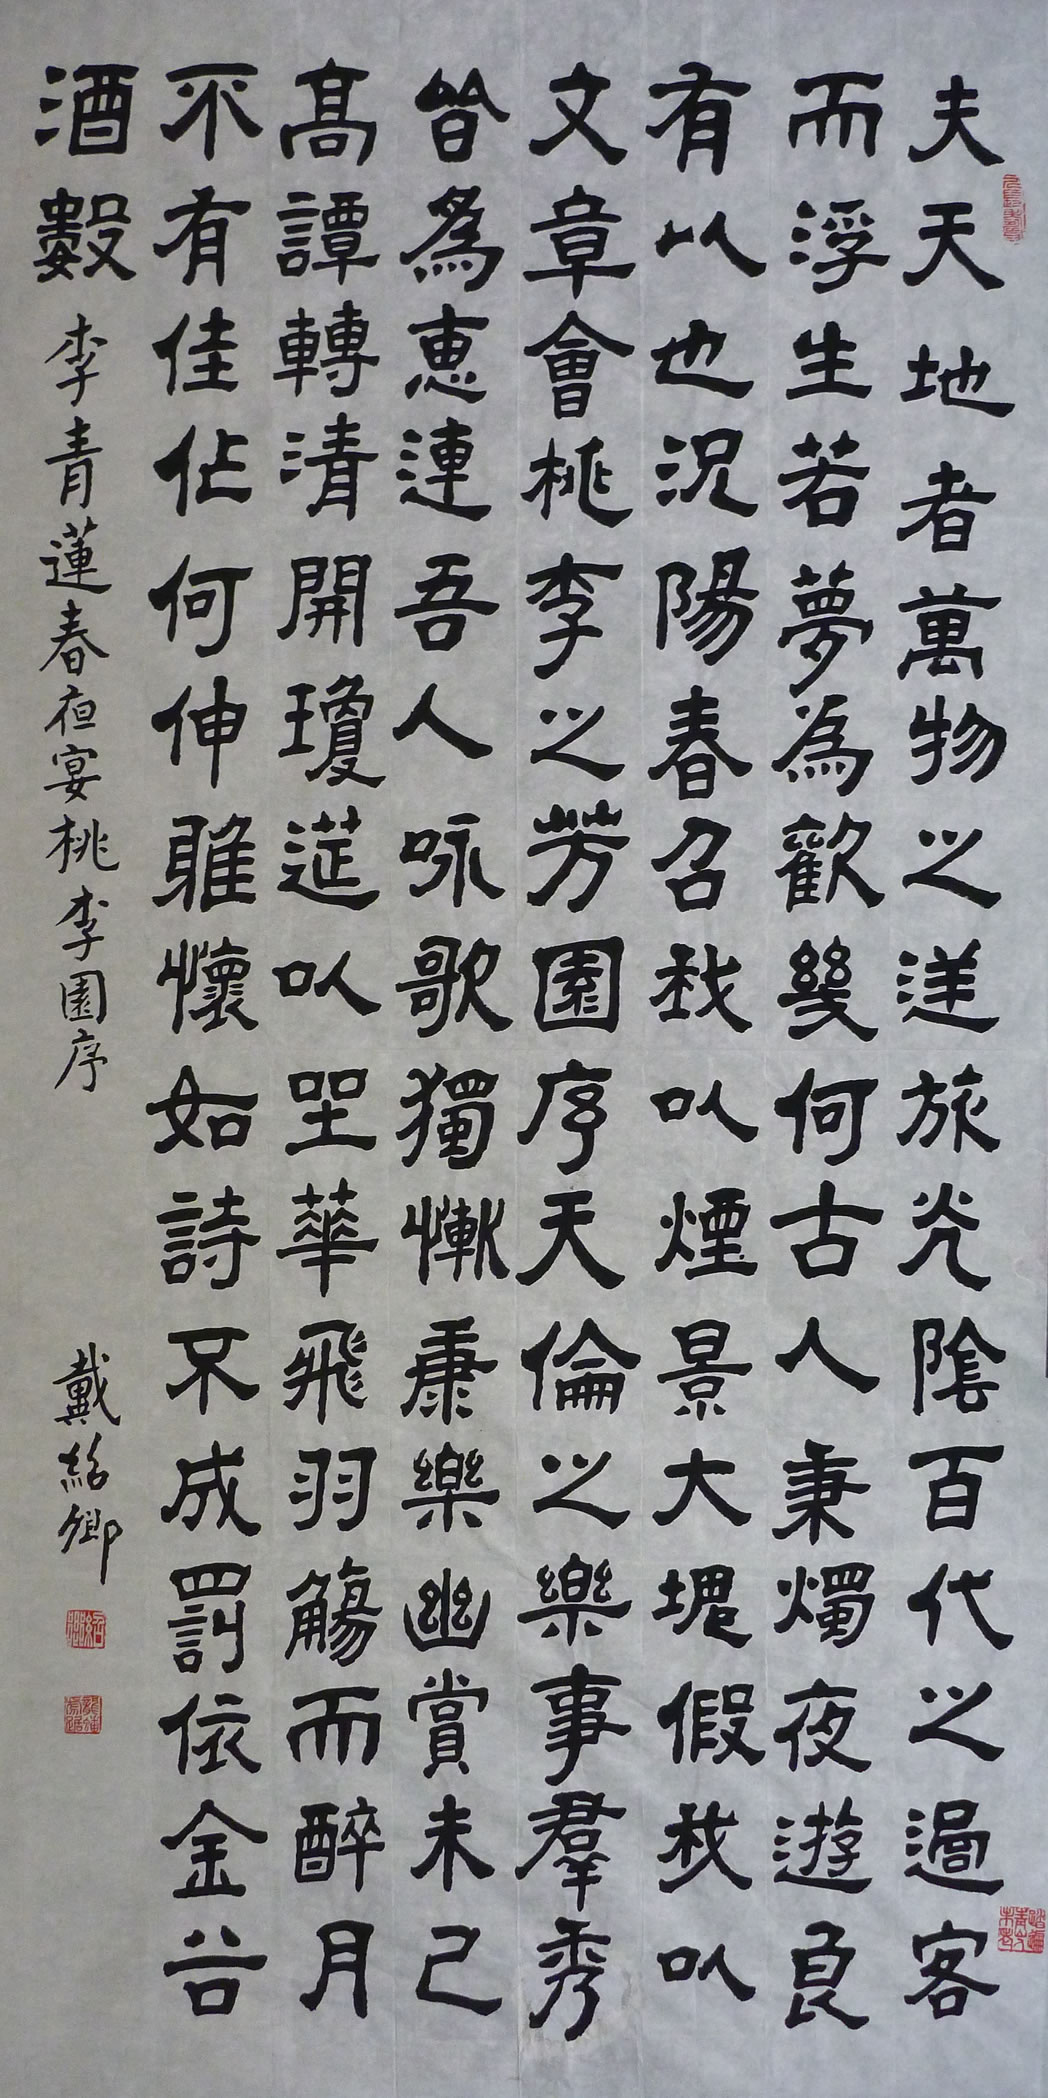 夫天地者萬物之逆旅光陰百代之過客
而浮生若夢為歡幾何古人秉燭夜遊良
有以也況陽春召我以煙景大塊假我以
文章會桃李之芳園序天倫之樂事羣秀
皆為惠連吾人咏歌獨慚康樂幽賞未已
高譚轉清開瓊筵以坐華飛羽觴而醉月
不有佳作何伸雅懷如詩不成罰依金谷
酒數 李青蓮春夜宴桃李園序 戴紹卿
紹卿